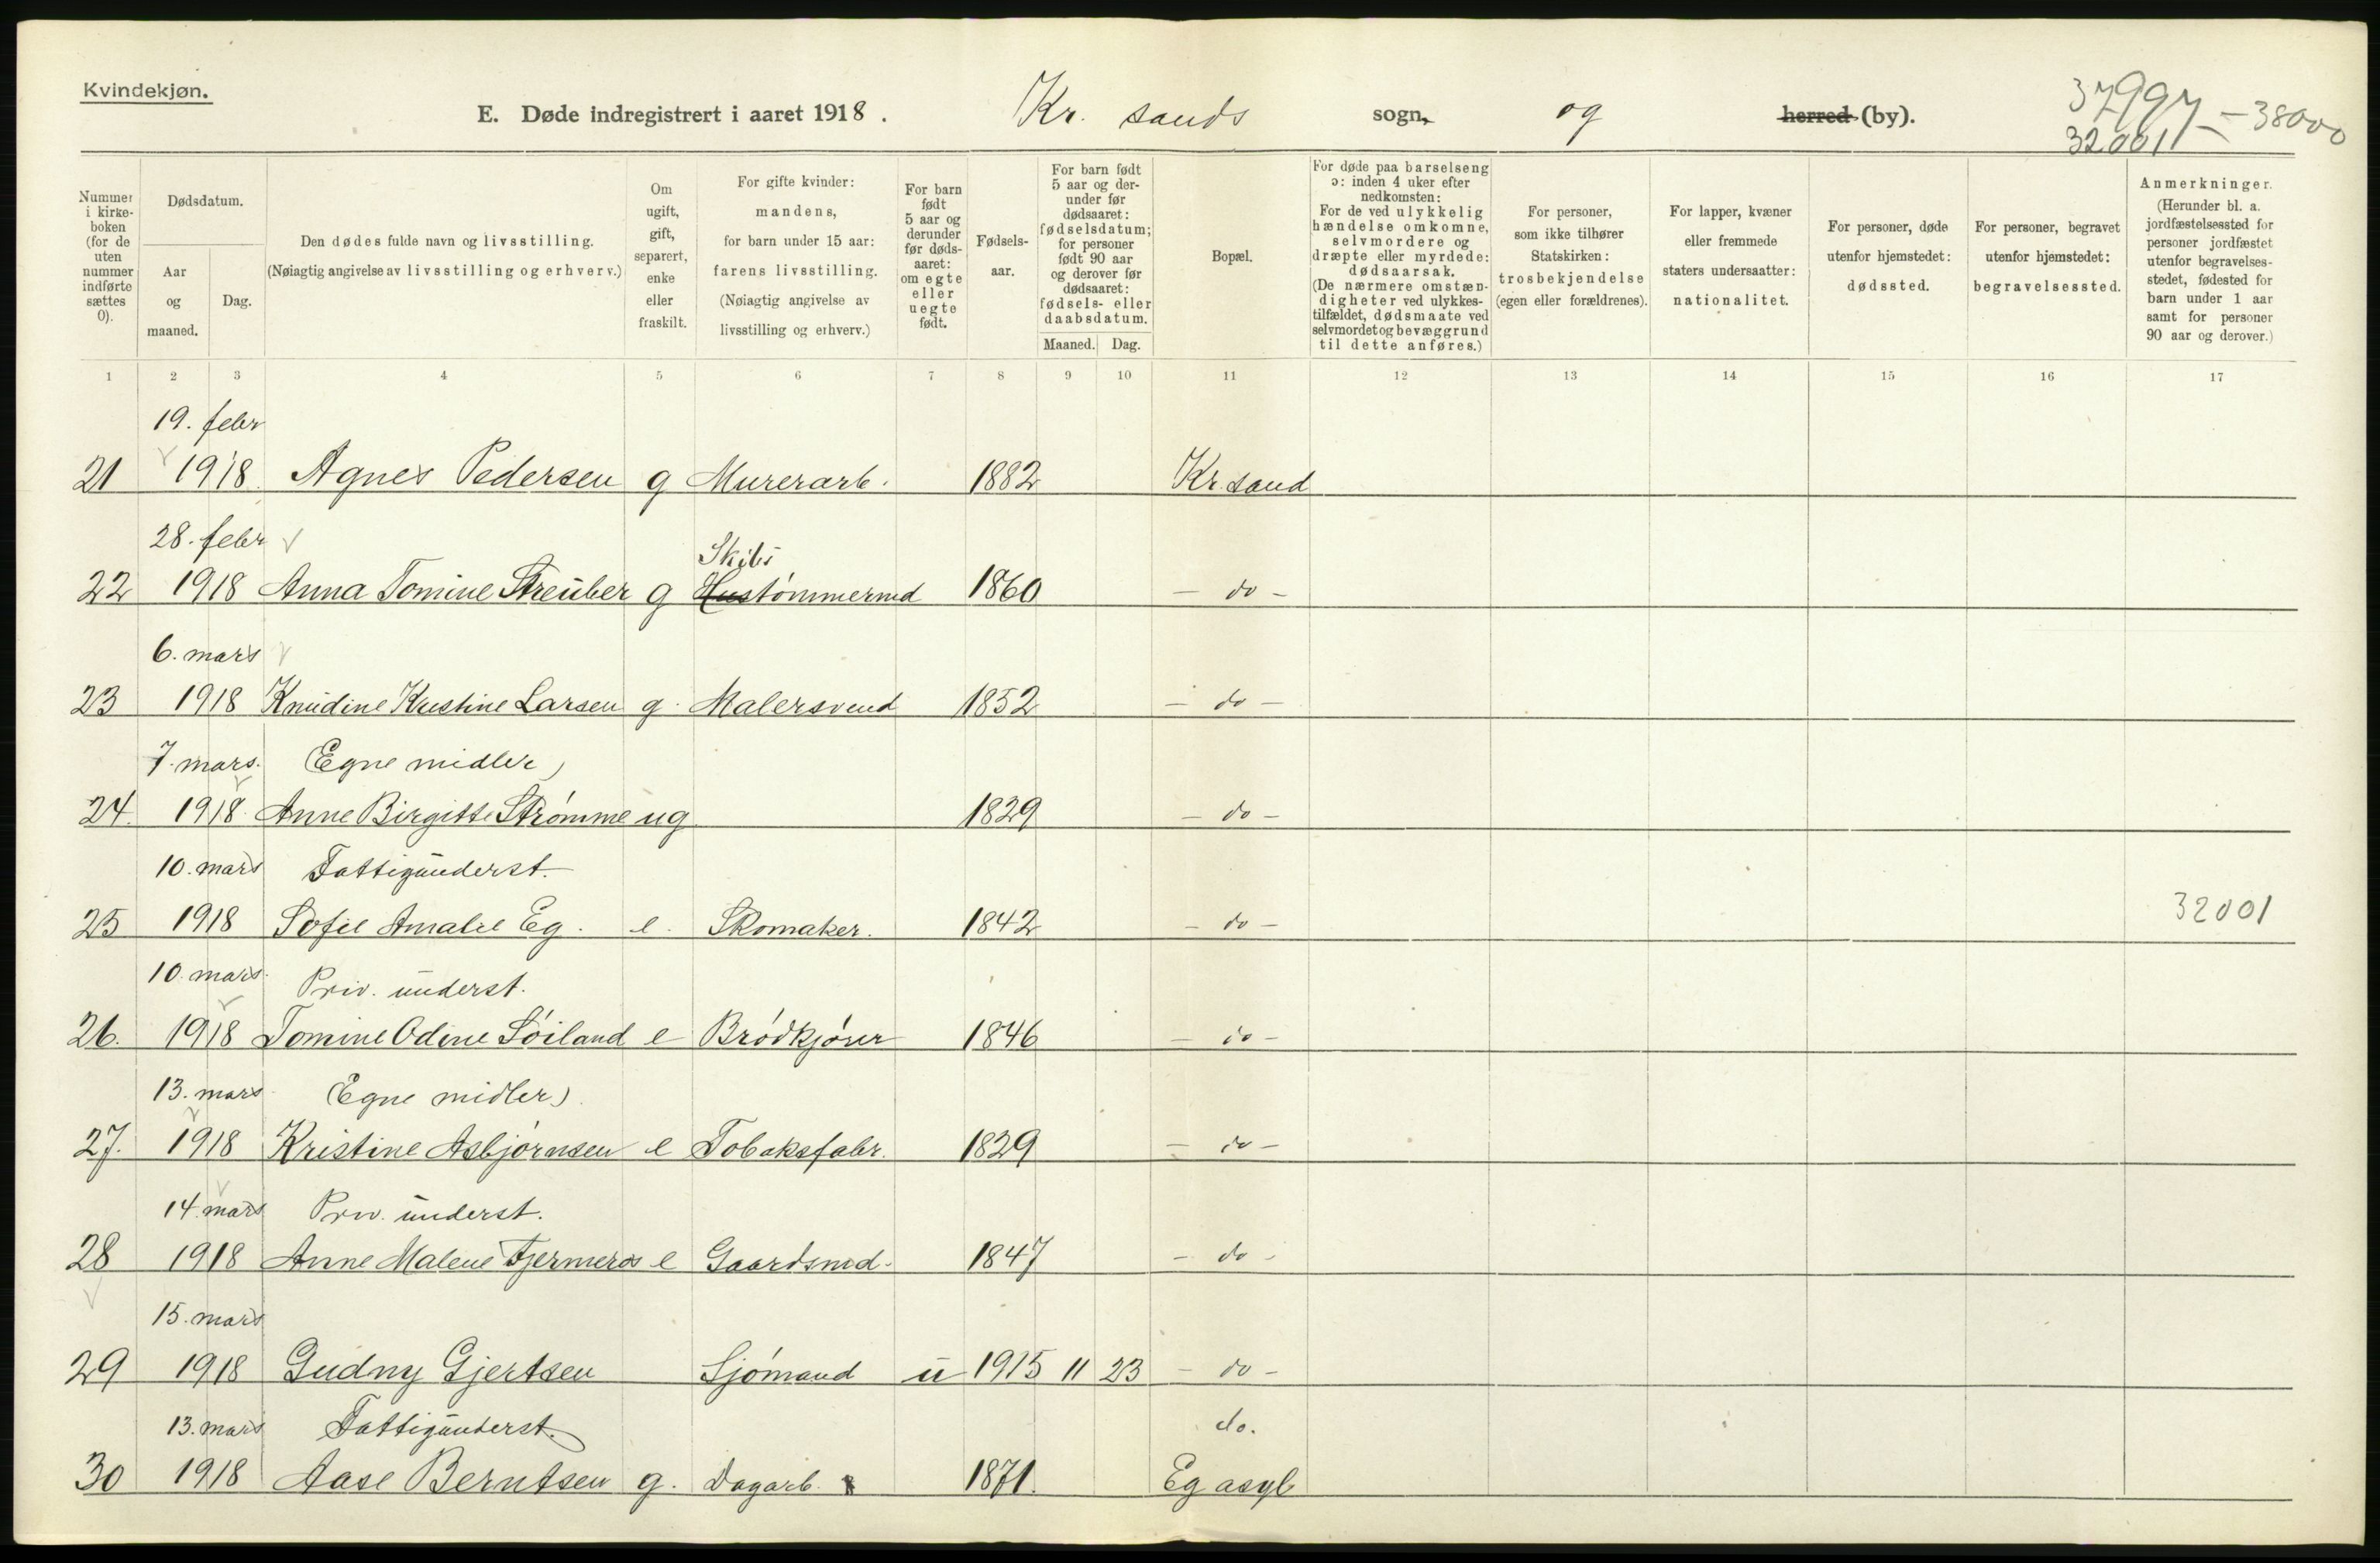 Kvindekjøn.
E. Døde indregistrert i aaret 1918. Kr. sands sogn, og herred (by).
37997 = 38000
32001
Nummer i kirkeboken (for de uten nummer indførte sættes 0).
Dødsdatum.
Aar og maaned.
Dag.
Den dødes fulde navn og livsstilling.
(Nøiagtig angivelse av livsstilling og erhverv.)
Om ugift, gift, separert, enke eller fraskilt.
For gifte kvinder: mandens, for barn under 15 aar: farens livsstilling. (Nøiagtig angivelse av livsstilling og erhverv.)
For barn født 5 aar og derunder før dødsaaret: om egte eller uegte født.
Fødselsaar.
For barn født 5 aar og derunder før dødsaaret: fødselsdatum; for personer født 90 aar og derover før dødsaaret: fødsels- eller daabsdatum.
Maaned. Dag.
Bopæl.
For døde paa barselseng ɔ: inden 4 uker efter nedkomsten: For de ved ulykkelig hændelse omkomne, selvmordere og dræpte eller myrdede: dødsaarsak. (De nærmere omstændigheter ved ulykkestilfældet, dødsmaate ved selvmordet og bevæggrund til dette anføres.)
For personer, som ikke tilhører Statskirken: trosbekjendelse (egen eller forældrenes).
For lapper, kvæner eller fremmede staters undersaatter: nationalitet.
For personer, døde utenfor hjemstedet: dødssted.
For personer, begravet utenfor hjemstedet: begravelsessted.
Anmerkninger. (Herunder bl. a. jordfæstelsessted for personer jordfæstet utenfor begravelsesstedet, fødested for barn under 1 aar samt for personer 90 aar og derover.)
1 2 3 4 5 6 7 8 9 10 11 12 13 14 15 16 17
19. febr
21 1918 Agnes Pedersen g Murerarb. 1882 Kr.sand
28. febr Skibs
22 1918 Anna Tomine Streuber g Hustømmermd 1860 - do -
6. mars
23 1918 Knudine Kristine Larsen g. Malersvend 1852 - do -
7. mars. (Egne midler)
24 1918 Anne Birgitte Strømme ug 1829 - do -
10. mars Fattigunderst.
25 1918 Sofie Amalie Eg. e. Skomaker. 1842 - do - 32001
10. mars. Priv. underst.
26. 1918 Tomine Odine Søiland e Brødkjører 1846 - do -
13. mars (Egne midler)
27. 1918 Kristine Asbjørnsen e Tobaksfabr. 1829 - do -
14. mars Priv. underst.
28 1918 Anne Malene Tjermeros e Gaardsmd. 1847 - do -
15. mars
29 1918 Gudny Gjertsen Sjømand u 1915 11 23 - do -
13. mars Fattigunderst. do.
30 1918 Aase Berntsen g. Dagarb. 1871. Eg asyl